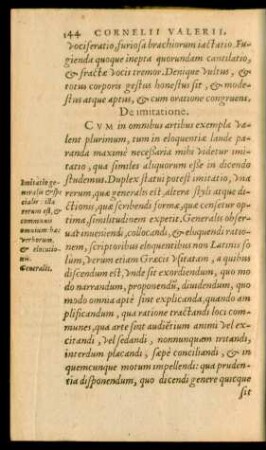 144 CORNELII VALERII.
vociferatio, furiosa brachiorum iactatio. Fu-
gienda quoque inepta quorundam cantilatio,
& fractæ vocis tremor. Denique vultus, &
totus corporis gestus honestus sit, & mode-
stus atque aptus, & cum oratione congruens.
De imitatione.
CVM in omnibus artibus exempla va-
leant plurimum, tum in eloquentiæ laude pa-
randa maximè necessaria mihi videtur imita-
tio, qua similes aliquorum esse in dicendo
studemus. Duplex statui potest imitatio, vna
rerum, quæ generalis est, altera styli atque di-
ctionis, quæ scribendi formæ, quæ censetur op-
tima, similitudinem expetit. Generalis obser-
uat inueniendi, collocandi, & eloquendi ratio-
nem, scriptoribus eloquentibus non Latinis so-
lùm, verùm etiam Græcis vsitatam, a quibus
discendum est, vnde sit exordiendum, quo mo
do narrandum, proponendū, diuidendum, quo
modo omnia aptè sint explicanda, quando am
plificandum, qua ratione tractandi loci com-
munes, qua arte sint auditium animi vel ex-
citandi, vel sedandi, nonnunquam irritandi,
interdum placandi, sæpè conciliandi, & in
quemcunque motum impellendi: qua pruden-
tia disponendum, quo dicendi genere quicque
sit
Imitatio ge-
neralis & spe
cialis: illa
rerum est, &
communis
omnium: hæc
verborum,
& elocutio-
nis.
Generalis.